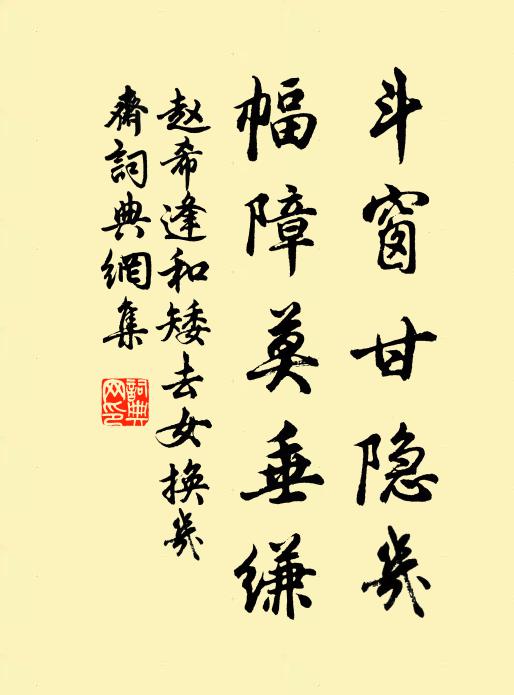 斗窗甘隐几
幅障莫垂缣
赵希逢和矮去女换几
斋词典網集
詞典网印